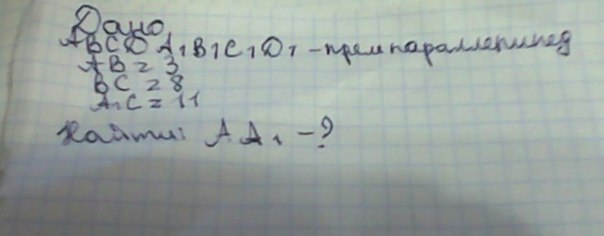 Дано
ABCD A₁B₁C₁D₁ - прям параллепипед
AB = 3
BC = 8
A₁C = 11
Найти: AA₁ - ?